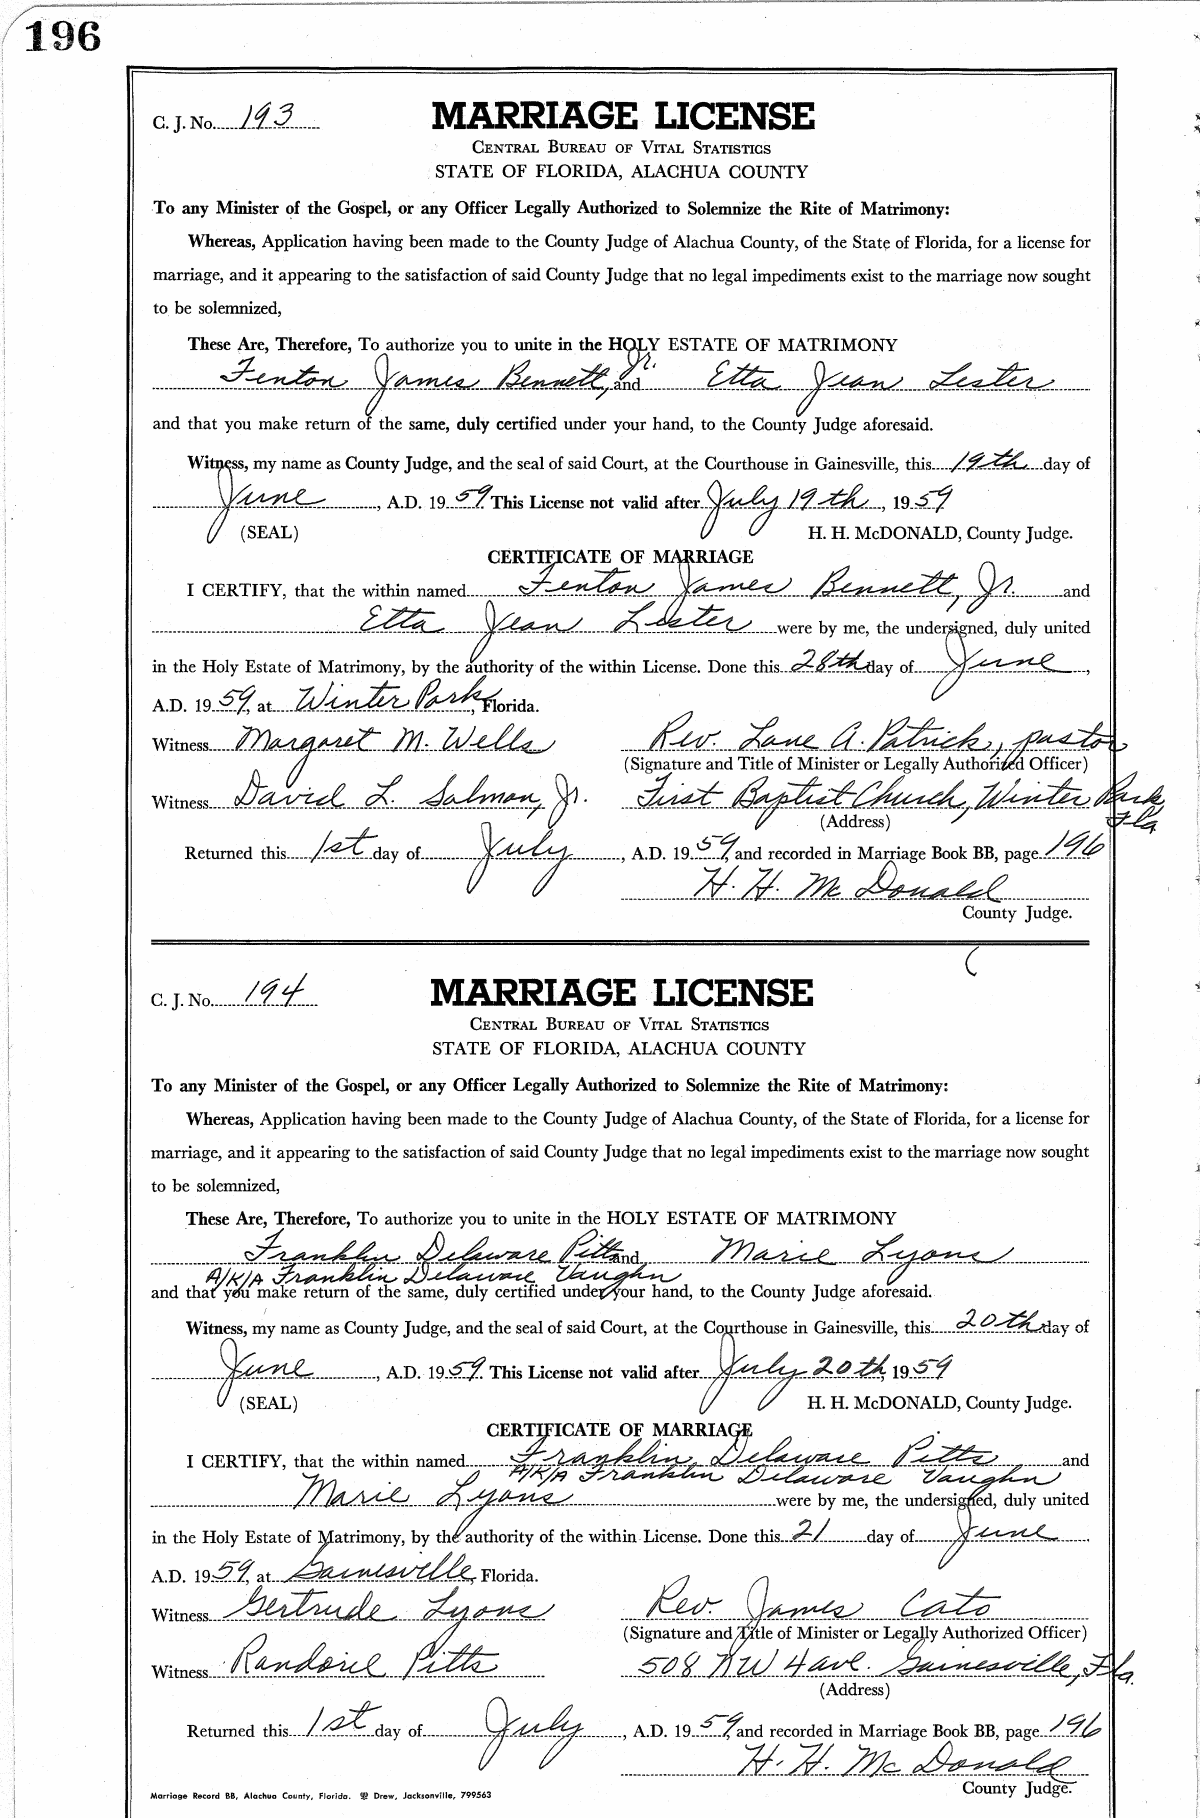 196
C. J. No. 193
MARRIAGE LICENSE
CENTRAL BUREAU OF VITAL STATISTICS
STATE OF FLORIDA, ALACHUA COUNTY
To any Minister of the Gospel, or any Officer Legally Authorized to Solemnize the Rite of Matrimony:
Whereas, Application having been made to the County Judge of Alachua County, of the State of Florida, for a license for
marriage, and it appearing to the satisfaction of said County Judge that no legal impediments exist to the marriage now sought
to be solemnized,
These Are, Therefore, To authorize you to unite in the HOLY ESTATE OF MATRIMONY
Fenton James Bennett, Jr. and Etta Jean Lester
and that you make return of the same, duly certified under your hand, to the County Judge aforesaid.
Witness, my name as County Judge, and the seal of said Court, at the Courthouse in Gainesville, this 19th day of
June, A.D. 1959. This License not valid after July 19th, 1959
(SEAL) H. H. McDONALD, County Judge.
CERTIFICATE OF MARRIAGE
I CERTIFY, that the within named Fenton James Bennett, Jr. and
Etta Jean Lester were by me, the undersigned, duly united
in the Holy Estate of Matrimony, by the authority of the within License. Done this 28th day of June,
A.D. 1959, at Winter Park, Florida.
Witness Margaret M. Wells Rev. Lane A. Patrick, pastor
(Signature and Title of Minister or Legally Authorized Officer)
Witness David L. Salmon, Jr. First Baptist Church, Winter Park
Fla
(Address)
Returned this 1st day of July, A.D. 1959, and recorded in Marriage Book BB, page 196
H. H. McDonald
County Judge.
C. J. No. 194
MARRIAGE LICENSE
CENTRAL BUREAU OF VITAL STATISTICS
STATE OF FLORIDA, ALACHUA COUNTY
To any Minister of the Gospel, or any Officer Legally Authorized to Solemnize the Rite of Matrimony:
Whereas, Application having been made to the County Judge of Alachua County, of the State of Florida, for a license for
marriage, and it appearing to the satisfaction of said County Judge that no legal impediments exist to the marriage now sought
to be solemnized,
These Are, Therefore, To authorize you to unite in the HOLY ESTATE OF MATRIMONY
Franklin Delaware Pitts and Marie Lyons
A/K/A Franklin Delaware Vaughn
and that you make return of the same, duly certified under your hand, to the County Judge aforesaid.
Witness, my name as County Judge, and the seal of said Court, at the Courthouse in Gainesville, this 20th day of
June, A.D. 1959. This License not valid after July 20th, 1959
(SEAL) H. H. McDONALD, County Judge.
CERTIFICATE OF MARRIAGE
I CERTIFY, that the within named Franklin Delaware Pitts and
A/K/A Franklin Delaware Vaughn
Marie Lyons were by me, the undersigned, duly united
in the Holy Estate of Matrimony, by the authority of the within License. Done this 21 day of June
A.D. 1959, at Gainesville, Florida.
Witness Gertrude Lyons Rev. James Cato
(Signature and Title of Minister or Legally Authorized Officer)
Witness Randorie Pitts 508 NW 4 ave. Gainesville, Fla.
(Address)
Returned this 1st day of July, A.D. 1959, and recorded in Marriage Book BB, page 196
H. H. McDonald
County Judge.
Marriage Record BB, Alachua County, Florida. Drew, Jacksonville, 799563